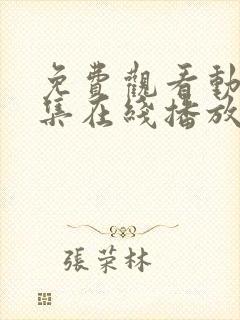 免費觀看動
集在綫播放
張荣林